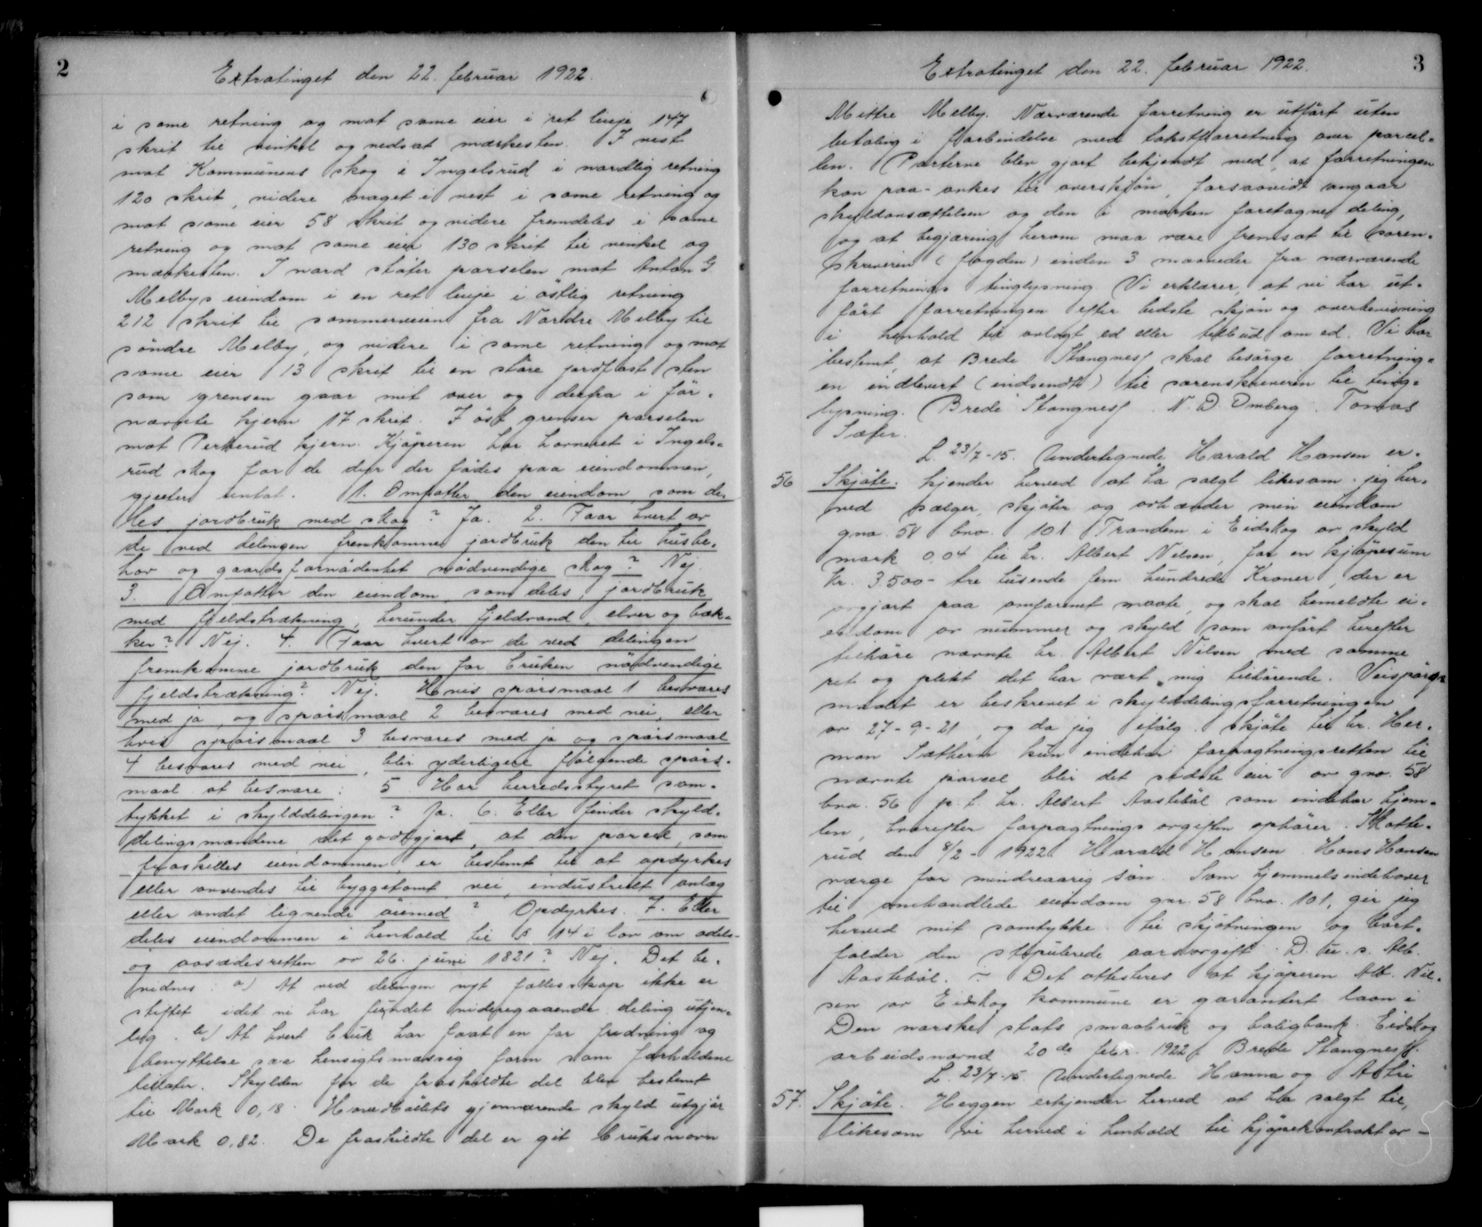 2
Extratinget den 22. februar 1922.
i same retning og mot same eier i ret linje 147
skrit til vinkel og nedsat merkesten. I vest
mot Kommunens skog i Ingelsrud i nordlig retning
120 skrit, videre noget i vest i same retning og
mot same eier 58 skrit og videre fremdeles i same
retning og mot same eier 130 skrit til venkel og
merkesten. I nord støter parselen mot Anton G.
Melbys eiendom i en ret linje i østlig retning
212 skrit til sommerveien fra Nordre Melby til
søndre Melby, og videre i same retning og mot
same eier 13 skrit til en støre jordfast sten
som grensen gaar mit over og derfra i før-
nævnte kjern 17 skrit. I øst grenser parselen
mot Perkerud kjern. Kjøperen har havneret i Ingels-
rud skog for de dyr der fødes paa eiendommen,
gjeder untat. 1. Omfatter den eiendom, som de-
les jordbruk med skog? Ja. 2. Faar hvert av
de ved delingen fremkomne jordbruk den til husbe-
hov og gaardsfornødenhet nødvendige skog? Nej
3. Omfatter den eiendom, som deles, jordbruk
med fjeldstrækning, herunder fjeldvand, elver og bæk-
ker? Nej. 4. Faar hvert av de ved delingen
fremkomne jordbruk den for bruken nødvendige
fjeldstrækning? Nej. Hvis spørsmaal 1 besvares
med ja, og spørsmaal 2 besvares med nei, eller
hvis spørsmaal 3 besvares med ja og spørsmaal
4 besvares med nei, blir yderligere følgende spørs-
maal at besvare: 5 Har herredsstyret sam-
tykket i skylddelingen? Ja. 6. Eller finder skyld-
delingsmændene det godtgjort, at den parsel, som
fraskilles eiendommen er bestemt til at opdyrkes
eller anvendes til byggetomt vei, industrielt anlæg
eller andet lignende øiemed? Opdyrkes. 7. Eller
deles eiendommen i henhold til § 14 i lov om odels-
og aasædesretten av 26. juni 1821? Nej. Det be-
vidnes: a) At ved delingen nyt fællesskap ikke er
stiftet idet vi har fundet videregaaende deling utjen-
lig. b) At hvert bruk har faat en for fredning og
benyttelse saa hensigtsmæssig form som forholdene
tillater. Skylden for de fraskildte del blev bestemt
til Mark 0,18. Hovedbølets gjenværende skyld utgjør
Mark 0,82. De fraskildte del er git bruksnavn
3
Extratinget den 22. februar 1922.
Mittre Melby. Nærværende forretning er utført uten
betaling i forbindelse med takstforretning over parcel-
len. Parterne blev gjort bekjendt med, at forretningen
kan paa-ankes til overskjøn, forsaavidt angaar
skyldansættelsen og den i marken foretagne deling,
og at begjæring herom maa være fremsat til soren-
skriveren (fogden) inden 3 maaneder fra nærværende
forretnings tinglysning. Vi erklærer, at vi har ut-
ført forretningen efter bedste skjøn og overbevisning
i henhold til avlagt ed eller tilbud om ed. Vi har
bestemt, at Brede Stangnes skal besørge forretning-
en indlevert (indsendt) til sorenskriveren til ting-
lysning. Brede Stangnes. N. D Omberg. Tomas
Sæter.
L. 23/7-15. Undertegnede Harald Hansen er-
56 Skjøte: kjender herved at ha solgt likesom jeg her-
ved sælger, skjøter og avhænder min eiendom
gno. 58 bno. 101 Trandem i Eidskog av skyld
mark 0,04 til hr. Albert Nilsen, for en kjøpesum
kr. 3500- tre tusende fem hundrede Kroner, der er
avgjort paa omforenet maate, og skal bemeldte ei-
endom av nummer og skyld som anført herefter
tilhøre nævnte hr. Albert Nilsen med samme
ret og plikt det har vært mig tilhørende. Veispørs-
maalet er beskrevet i skylddelingsforretningen
av 27-9-21, og da jeg ifølg. skjøte til hr. Her-
man Sætheren kun endehar forpagtningsretten til
nævnte parsel blir det sidste eier av gno. 58
bno. 56 p. t. hr. Albert Aastebøl som indehar hjem-
len, hvorefter forpagtnings avgiften ophører. Matte-
rud den 8/2-1922. Harald Hansen. Hans Hansen
værge for mindreaarig søn. Som hjemmelsindehaver
til omhandlede eiendom gnr. 58 bno. 101, gir jeg
herved mit samtykke til skjøtningen og bort-
falder den stipulerede aarsavgift. D. u. s. Alb.
Aastebøl. ~ Det attesteres at kjøperen Alb. Nil-
sen av Eidskog kommune er garantert laan i
Den norske stats smaabruk og boligbank. Eidskog
arbeidsnævnd 20de febr. 1922. Brede Stangnes.
L. 23/7-15 Undertegnede Hanna og
57. Skjøte. Heggen erkjender herved at ha solgt til,
likesom vi herved i henhold til kjøpekontrakt av -